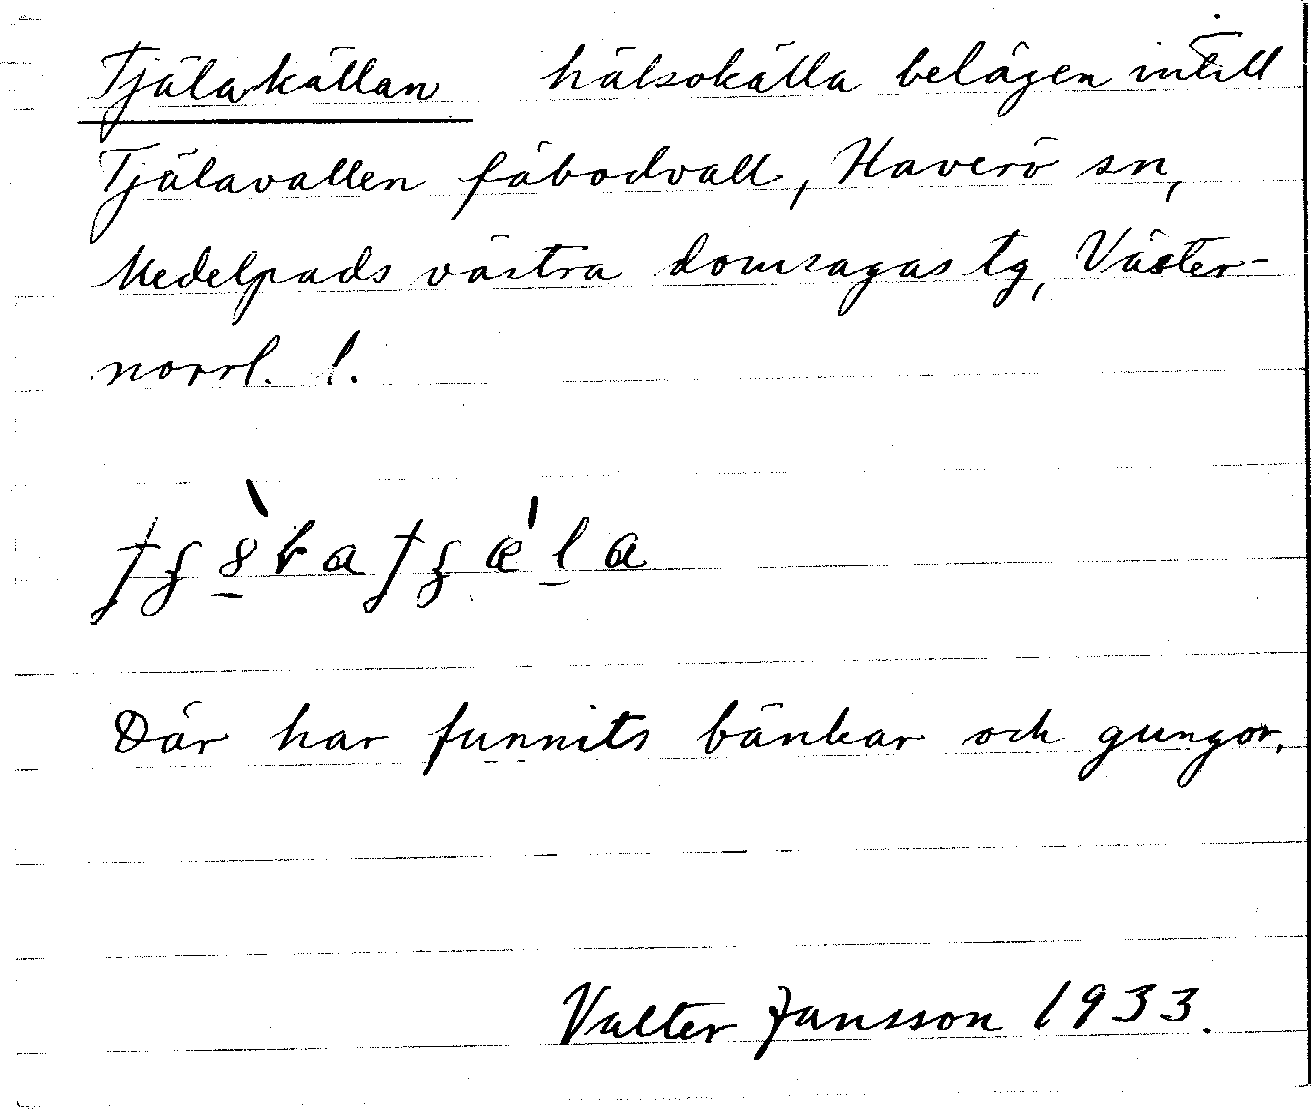 Tjälakällan hälsokälla belägen intill
Tjälavallen fäbodvall, Haverö sn,
Medelpads västra domsagas tg, Väster-
norrl. l.
Där har funnits bänkar och gungor.
Valter Jansson 1933.